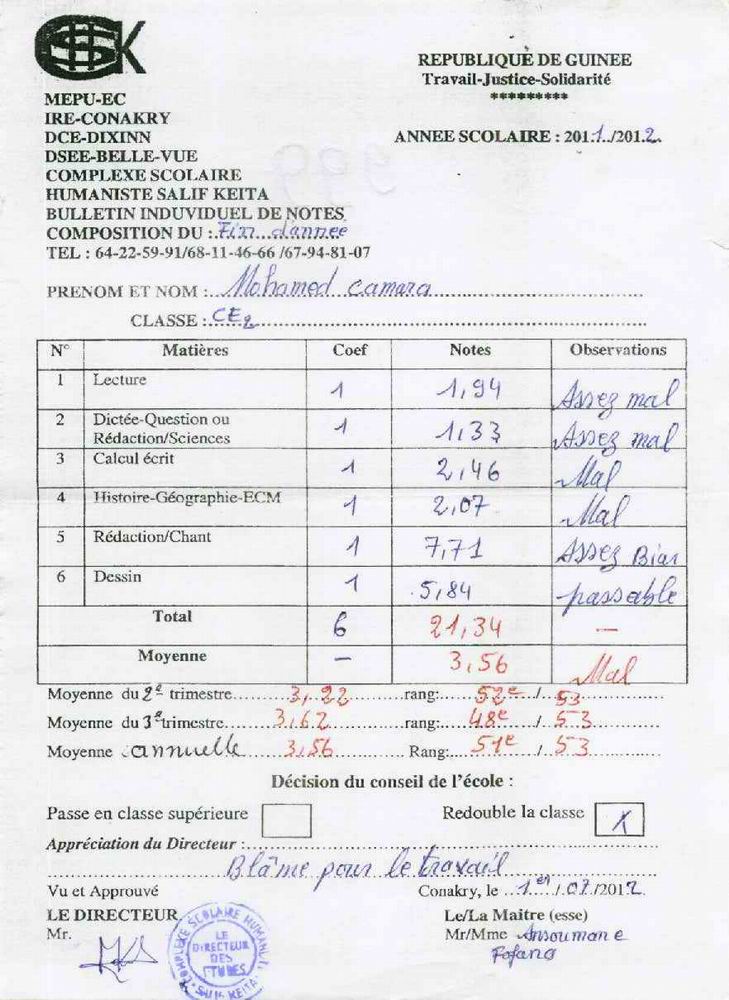 SHSK
REPUBLIQUE DE GUINEE
Travail-Justice-Solidarité
*********
MEPU-EC
IRE-CONAKRY
DCE-DIXINN
ANNEE SCOLAIRE : 2011/2012
DSEE-BELLE-VUE
COMPLEXE SCOLAIRE
HUMANISTE SALIF KEITA
BULLETIN INDUVIDUEL DE NOTES
COMPOSITION DU : Fin d'annee
TEL : 64-22-59-91/68-11-46-66 /67-94-81-07
PRENOM ET NOM : Mohamed camara
CLASSE : CE2
N° Matières Coef Notes Observations
1 Lecture 1 1,94 Assez mal
2 Dictée-Question ou Rédaction/Sciences 1 1,33 Assez mal
3 Calcul écrit 1 2,46 Mal
4 Histoire-Géographie-ECM 1 2,07 Mal
5 Rédaction/Chant 1 7,71 Assez Bien
6 Dessin 1 5,84 passable
Total 6 21,34 —
Moyenne – 3,56 Mal
Moyenne du 2e trimestre 3,22 rang: 52e / 53
Moyenne du 3e trimestre 3,62 rang: 48e / 53
Moyenne annuelle 3,56 Rang: 51e / 53
Décision du conseil de l'école :
Passe en classe supérieure Redouble la classe X
Appréciation du Directeur :
Blâme pour le travail
Vu et Approuvé Conakry, le 1er/07/2012
LE DIRECTEUR Le/La Maitre (esse)
Mr. Mr/Mme Ansoumane
Fofana
COMPLEXE SCOLAIRE HUMANISTE
LE
DIRECTEUR
DES
ETUDES
SALIF KEITA